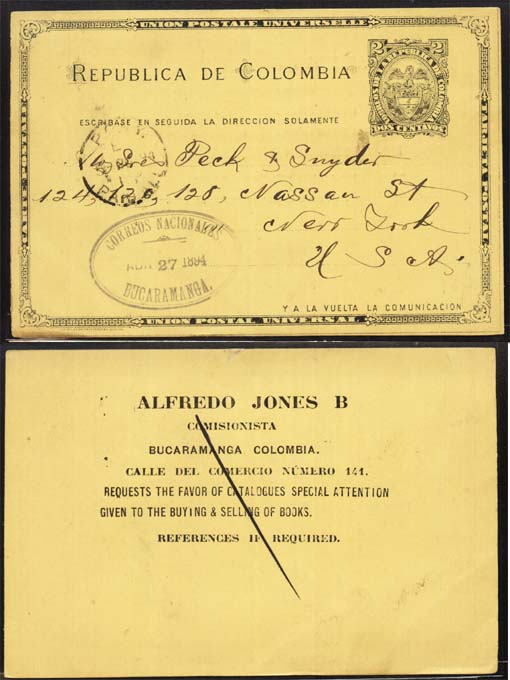 UNION POSTALE UNIVERSELLE
REPUBLICA DE COLOMBIA
2 2
DOS CENTAVOS
ESCRIBASE EN SEGUIDA LA DIRECCION SOLAMENTE
Peck & Snyder
124, 126, 128, Nassau St
New York
U S A.
CORREOS NACIONALES
27 1894
BUCARAMANGA.
Y A LA VUELTA LA COMUNICACION
UNION POSTAL UNIVERSAL
CARTE POSTALE
TARJETA POSTAL
ALFREDO JONES B
COMISIONISTA
BUCARAMANGA COLOMBIA.
CALLE DEL COMERCIO NÚMERO 141.
REQUESTS THE FAVOR OF CATALOGUES SPECIAL ATTENTION
GIVEN TO THE BUYING & SELLING OF BOOKS.
REFERENCES IF REQUIRED.